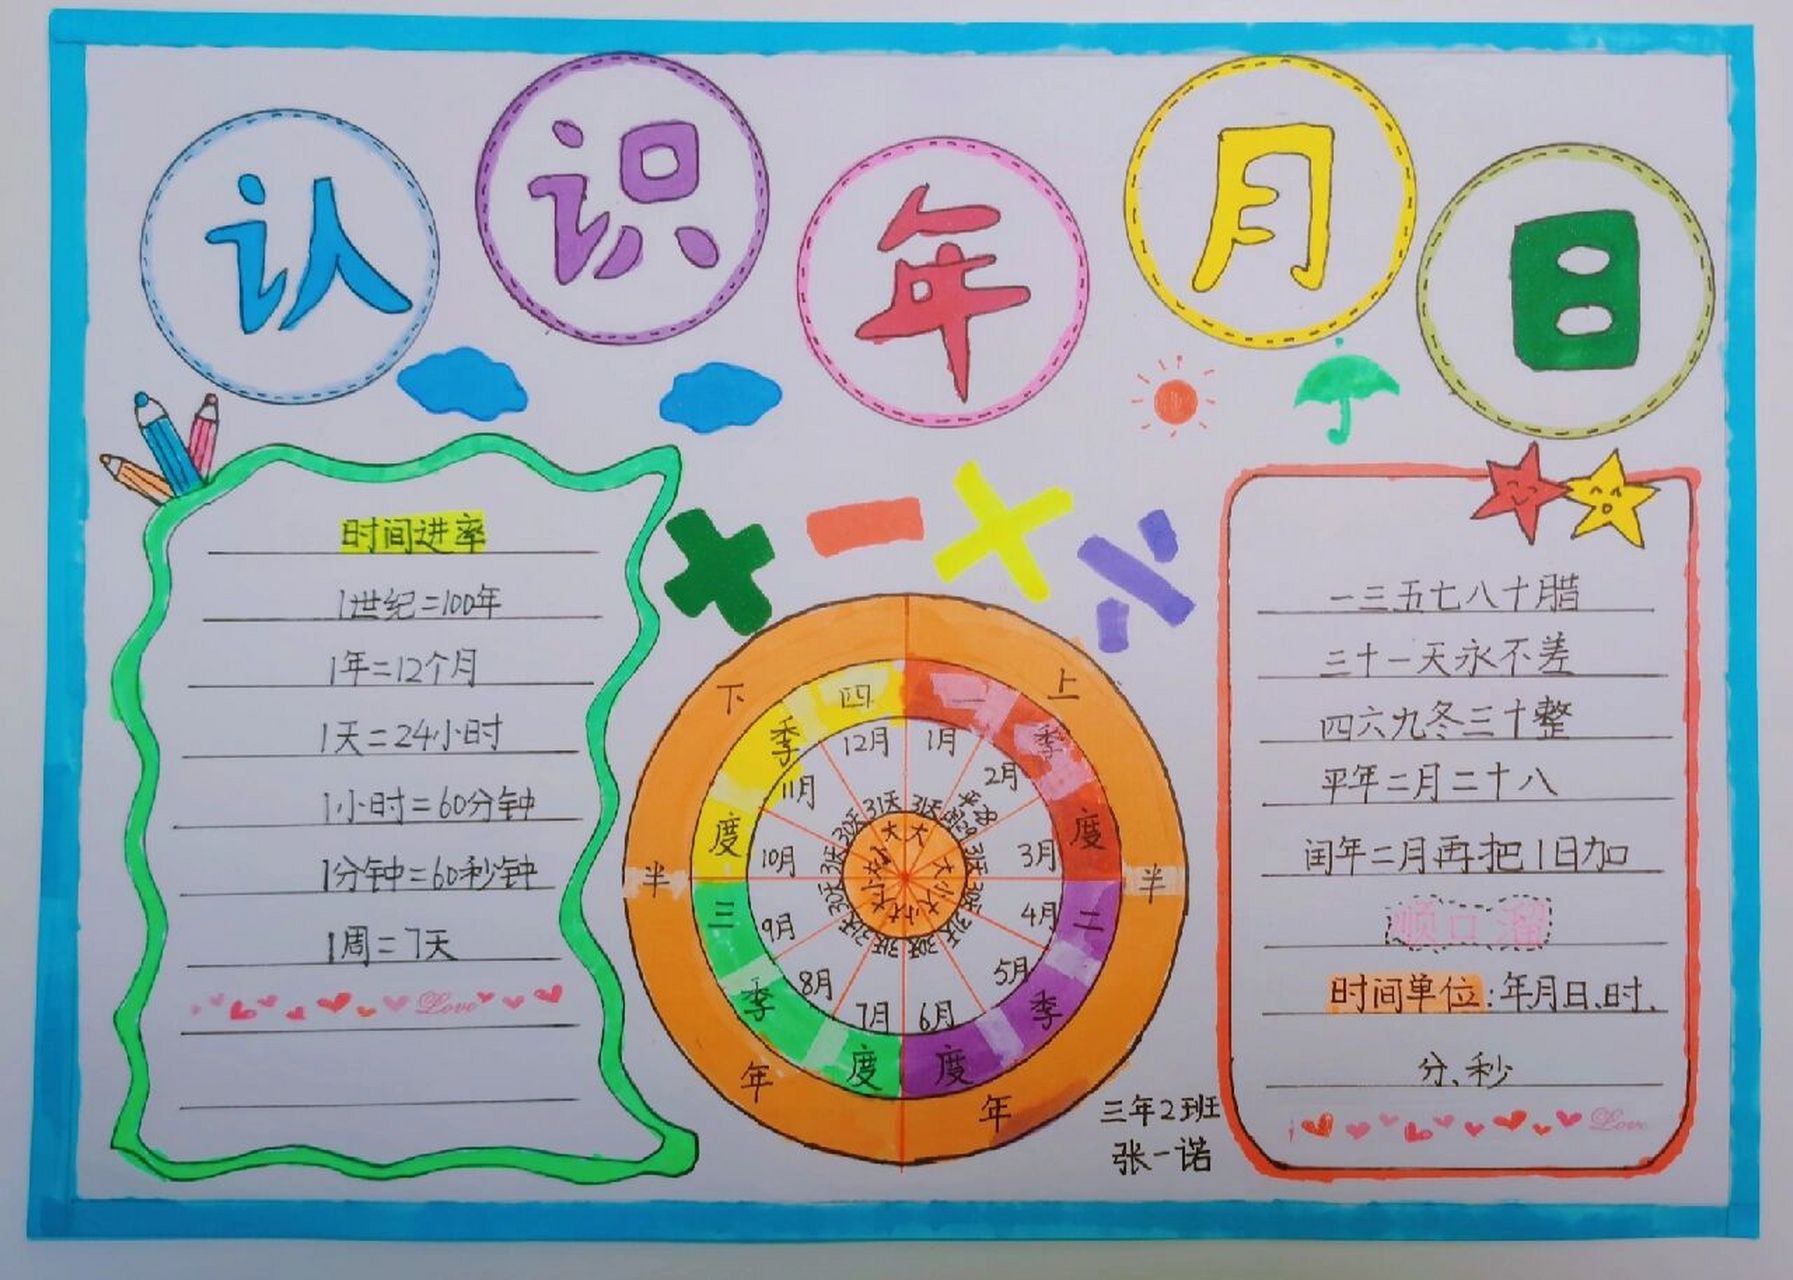 认识年月日
时间进率
1世纪=100年
1年=12个月
1天=24小时
1小时=60分钟
1分钟=60秒钟
1周=7天
Love
上半年
下半年
一季度
二季度
三季度
四季度
1月
2月
3月
4月
5月
6月
7月
8月
9月
10月
11月
12月
31天
平28
闰29
31天
30天
31天
30天
31天
31天
30天
31天
30天
31天
大
大
小
大
小
大
大
小
大
小
大
一三五七八十腊
三十一天永不差
四六九冬三十整
平年二月二十八
闰年二月再把1日加
顺口溜
时间单位:年月日、时、
分、秒
Love
三年2班
张一诺